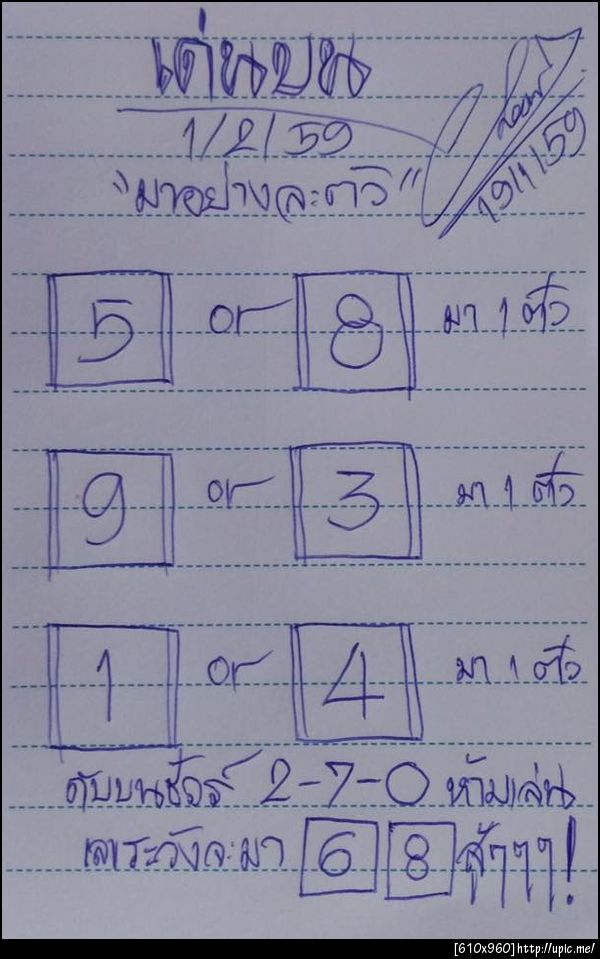 เด่นบน
1/2/59
19/1/59
"มาอย่างละตัว"
5 or 8 มา 1 ตัว
9 or 3 มา 1 ตัว
1 or 4 มา 1 ตัว
ดับบนชัวร์ 2-7-0 ห้ามเล่น
เลขระวังจะมา 6 8 สู้ๆๆๆ!
[610x960]http://upic.me/